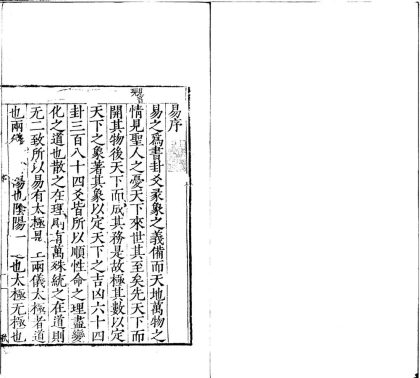 易序
易之爲書卦爻彖象之義備而天地萬物之
情見聖人之憂天下來世其至矣先天下而
開其物後天下而成其務是故極其數以定
天下之象著其象以定天下之吉凶六十四
卦三百八十四爻皆所以順性命之理盡變
化之道也散之在理則有萬殊統之在道則
无二致所以易有太極是 兩儀太極者道
也兩 也陰陽一 也太極无極也